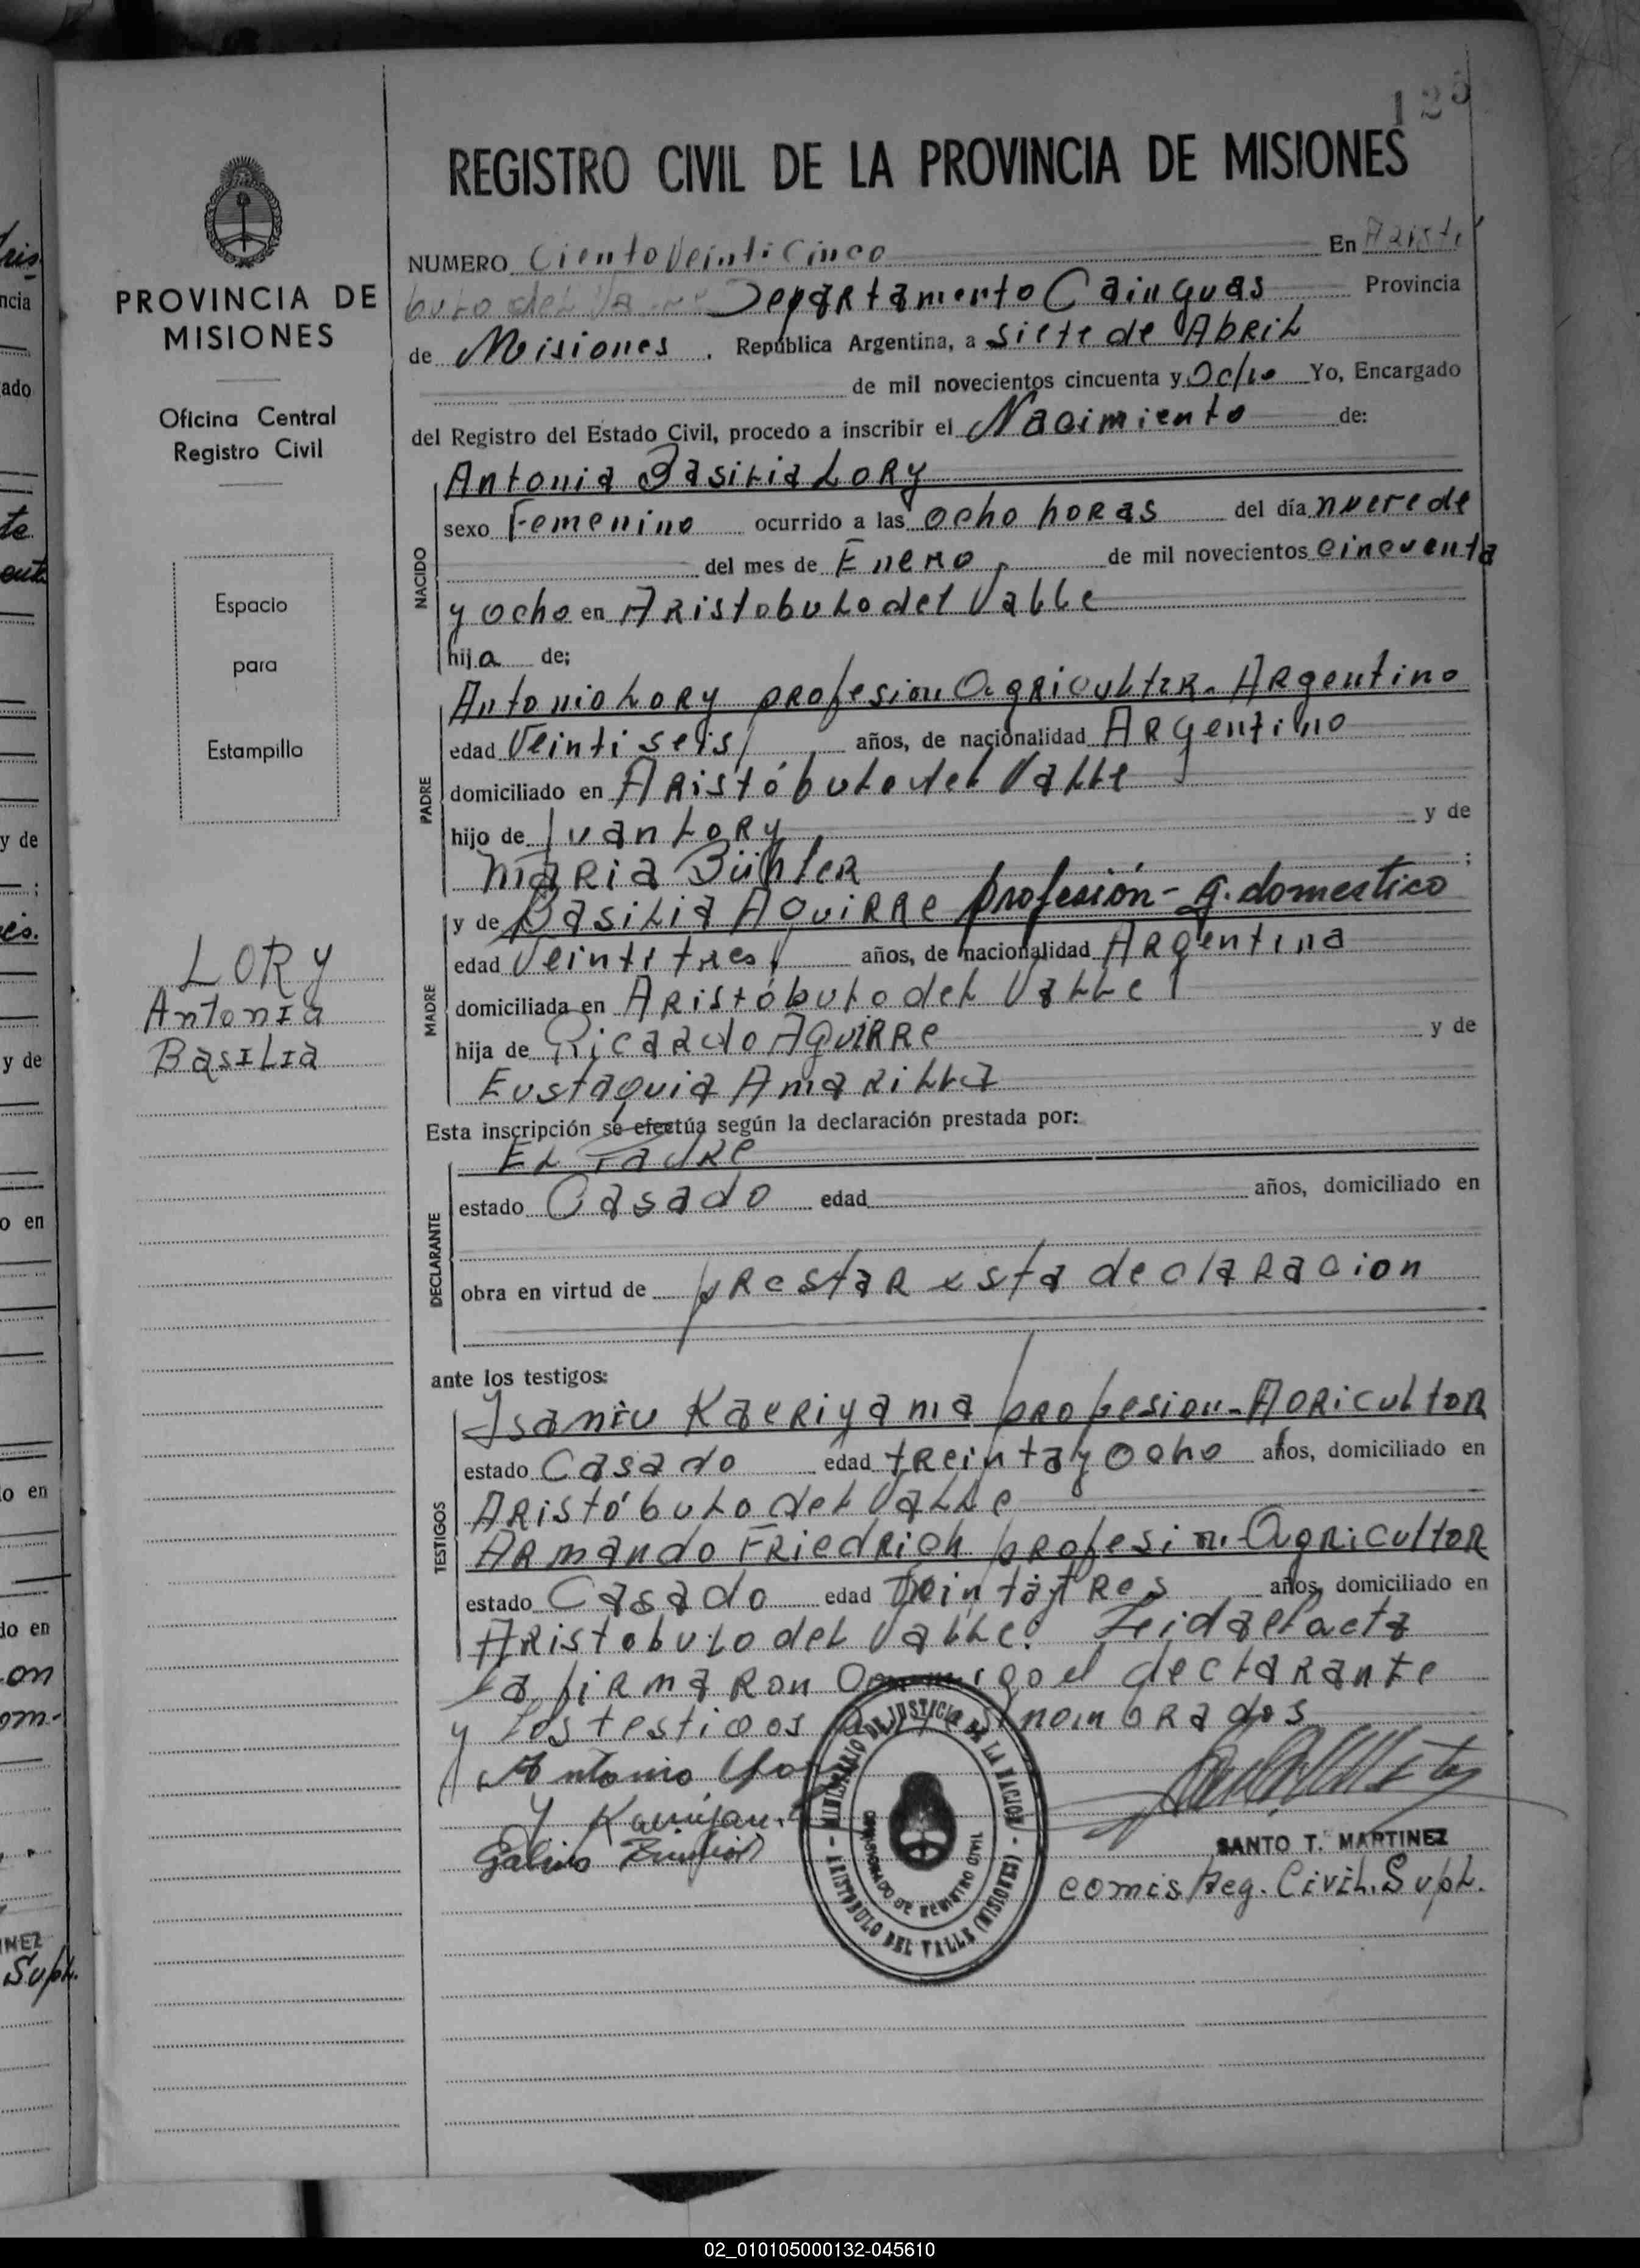 125
REGISTRO CIVIL DE LA PROVINCIA DE MISIONES
NUMERO Ciento Veinti Cinco En Aristó
bulo del Valle Departamento Cainguas Provincia
de Misiones. República Argentina, a siete de Abril
de mil novecientos cincuenta y Ocho Yo, Encargado
del Registro del Estado Civil, procedo a inscribir el Nacimiento de:
NACIDO
Antonia Basilia Lory
sexo Femenino ocurrido a las ocho horas del día nueve de
del mes de Enero de mil novecientos cincuenta
y ocho en Aristobulo del Valle
hija de;
PADRE
Antonio Lory profesion Agricultor. Argentino
edad Veinti seis años, de nacionalidad Argentino
domiciliado en Aristóbulo del Valle
hijo de Juan Lory y de
Maria Bühler ;
MADRE
y de Basilia Aguirre profesión - q. domestico
edad Veintitres años, de nacionalidad Argentina
domiciliada en Aristóbulo del Valle
hija de Ricardo Aguirre y de
Eustaquia Amarilla
Esta inscripción se efectúa según la declaración prestada por:
DECLARANTE
El Padre
estado Casado edad años, domiciliado en
obra en virtud de prestar esta declaracion
ante los testigos:
TESTIGOS
Kaeriyama profesion - Agricultor
estado Casado edad treinta y Ocho años, domiciliado en
Aristóbulo del Valle
Armando Friedrich profesion - Agricultor
estado Casado edad treinta y tres años, domiciliado en
Aristobulo del Valle. Leida el acta
la firmaron conmigo el declarante
y los testigos nombrados
Antonio Lory
SANTO T. MARTINEZ
comis Reg. Civil. Supl.
MINISTERIO DE JUSTICIA DE LA NACION
ARISTOBULO DEL VALLE (MISIONES)
COMISIONADO DE REGISTRO CIVIL
PROVINCIA DE
MISIONES
Oficina Central
Registro Civil
Espacio
para
Estampilla
LORY
Antonia
Basilia
02_010105000132-045610